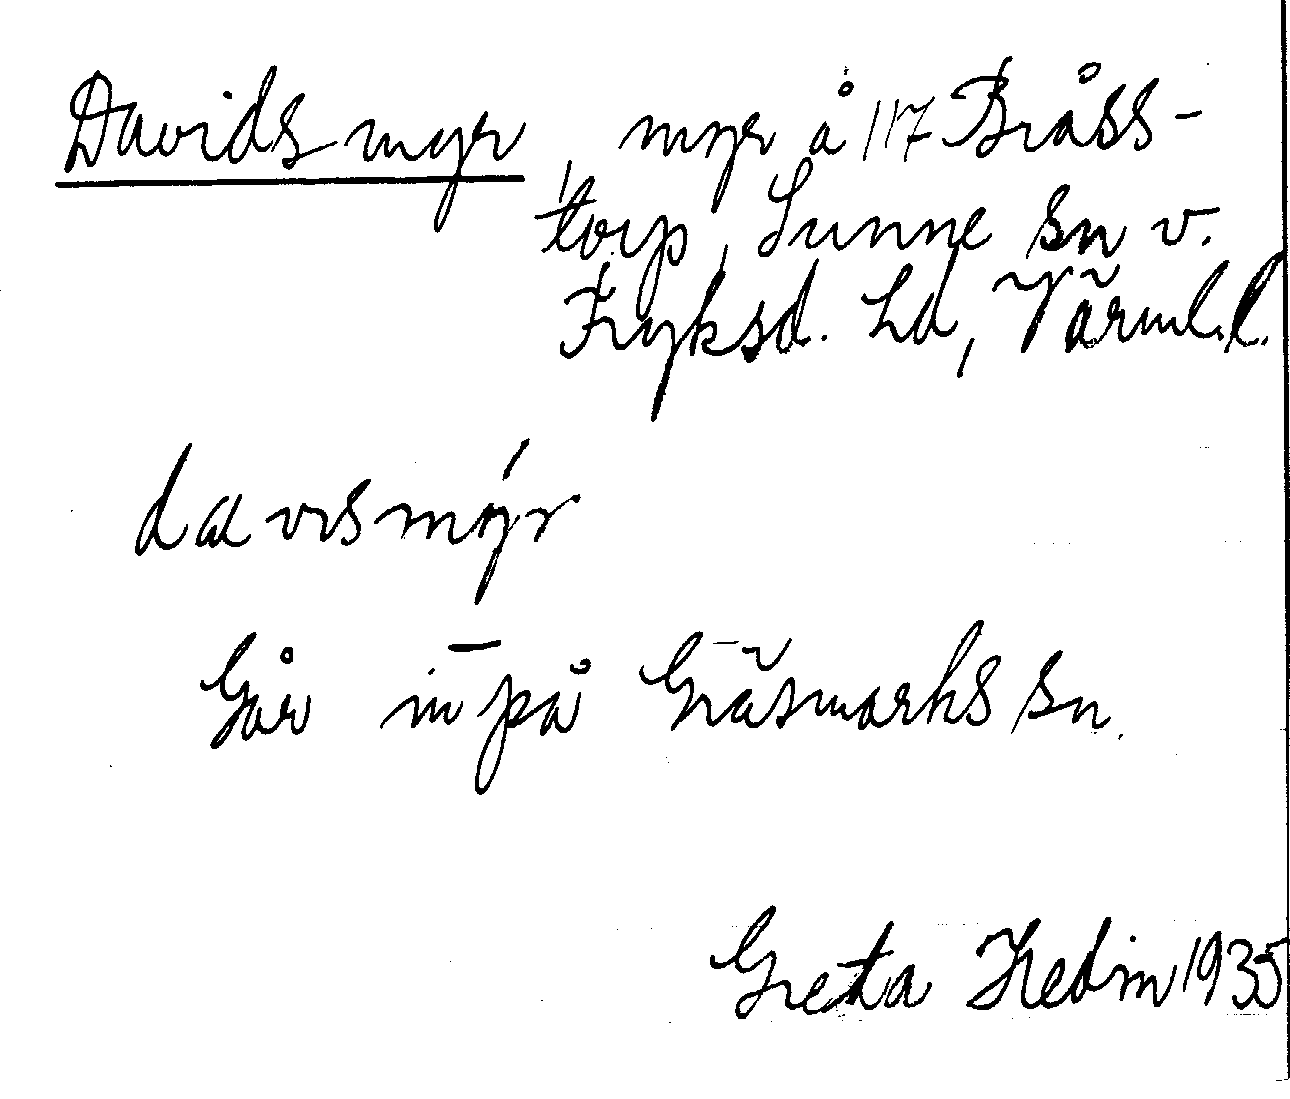 Davidsmyr, myr å 117 Bråss-
torp, Sunne sn v.
Fryksd. hd, Värml.l.
davismýr
Går in på Gräsmarks sn.
Greta Hedin 1935